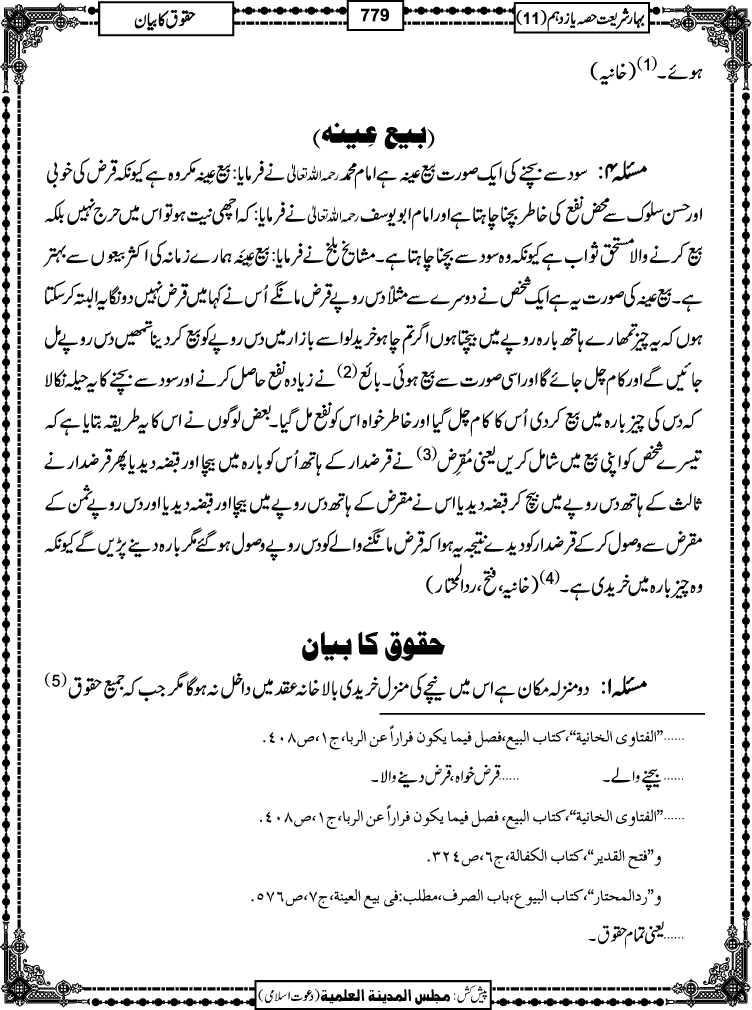 بہار شریعت حصہ یازدہم (11)
779
حقوق کا بیان
ہوئے۔(1) (خانیہ)
(بیع عِینہ)
مسئلہ ۴: سود سے بچنے کی ایک صورت بیع عینہ ہے امام محمد رحمہ اللہ تعالیٰ نے فرمایا: بیع عِینہ مکروہ ہے کیونکہ قرض کی خوبی
اور حسن سلوک سے محض نفع کی خاطر بچنا چاہتا ہے اور امام ابو یوسف رحمہ اللہ تعالیٰ نے فرمایا: کہ اچھی نیت ہو تو اس میں حرج نہیں بلکہ
بیع کرنے والا مستحق ثواب ہے کیونکہ وہ سود سے بچنا چاہتا ہے۔ مشایخ بلخ نے فرمایا: بیع عِینَہ ہمارے زمانہ کی اکثر بیعوں سے بہتر
ہے۔ بیع عینہ کی صورت یہ ہے ایک شخص نے دوسرے سے مثلاً دس روپے قرض مانگے اُس نے کہا میں قرض نہیں دونگا یہ البتہ کر سکتا
ہوں کہ یہ چیز تمہارے ہاتھ بارہ روپے میں بیچتا ہوں اگر تم چاہو خرید لو اسے بازار میں دس روپے کو بیع کر دینا تمھیں دس روپے مل
جائیں گے اور کام چل جائے گا اور اسی صورت سے بیع ہوئی۔ بائع (2) نے زیادہ نفع حاصل کرنے اور سود سے بچنے کا یہ حیلہ نکالا
کہ دس کی چیز بارہ میں بیع کر دی اُس کا کام چل گیا اور خاطر خواہ اس کو نفع مل گیا۔ بعض لوگوں نے اس کا یہ طریقہ بتایا ہے کہ
تیسرے شخص کو اپنی بیع میں شامل کریں یعنی مُقرِض (3) نے قرضدار کے ہاتھ اُس کو بارہ میں بیچا اور قبضہ دیدیا پھر قرضدار نے
ثالث کے ہاتھ دس روپے میں بیچ کر قبضہ دیدیا اس نے مقرض کے ہاتھ دس روپے میں بیچا اور قبضہ دیدیا اور دس روپے ثمن کے
مقرض سے وصول کر کے قرضدار کو دیدے نتیجہ یہ ہوا کہ قرض مانگنے والے کو دس روپے وصول ہو گئے مگر بارہ دینے پڑیں گے کیونکہ
وہ چیز بارہ میں خریدی ہے۔(4) (خانیہ، فتح، ردالمحتار)
حقوق کا بیان
مسئلہ ۱: دو منزلہ مکان ہے اس میں نیچے کی منزل خریدی بالا خانہ عقد میں داخل نہ ہوگا مگر جب کہ جمیع حقوق (5)
......”الفتاوی الخانیة“،کتاب البیع،فصل فیما یکون فراراً عن الربا،ج۱،ص۴۰۸.
......بیچنے والے۔ ......قرض خواہ، قرض دینے والا۔
......”الفتاوی الخانیة“،کتاب البیع،فصل فیما یکون فراراً عن الربا،ج۱،ص۴۰۸.
و”فتح القدیر“،کتاب الکفالة،ج۶،ص۳۲٤.
و”ردالمحتار“،کتاب البیوع،باب الصرف،مطلب:فی بیع العینة،ج۷،ص۵۷۶.
......یعنی تمام حقوق۔
پیش کش: مجلس المدینة العلمیة (دعوت اسلامی)